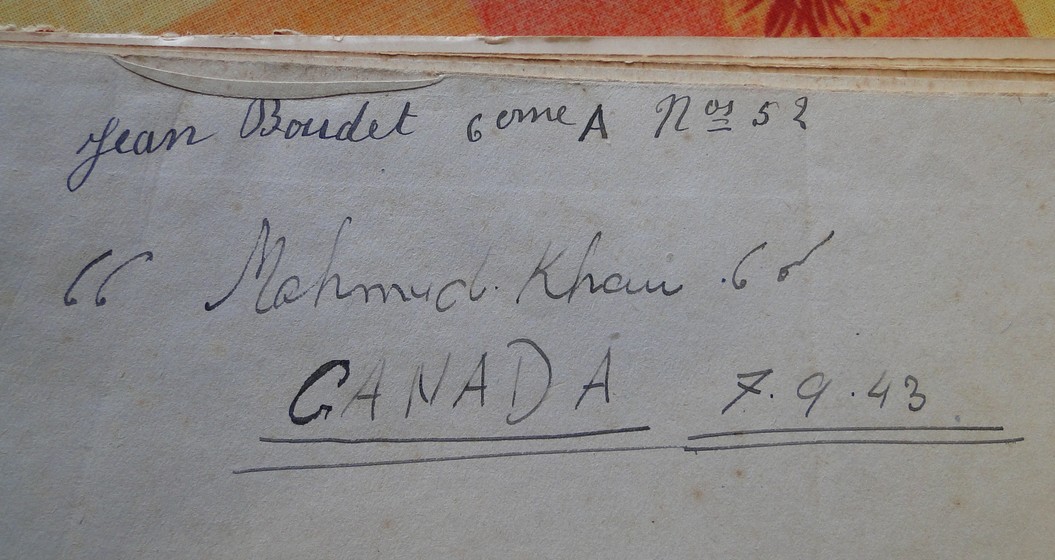 Jean Boudet 6eme A Nos 52
66 Mahmud. Khan .66
CANADA 7.9.43.